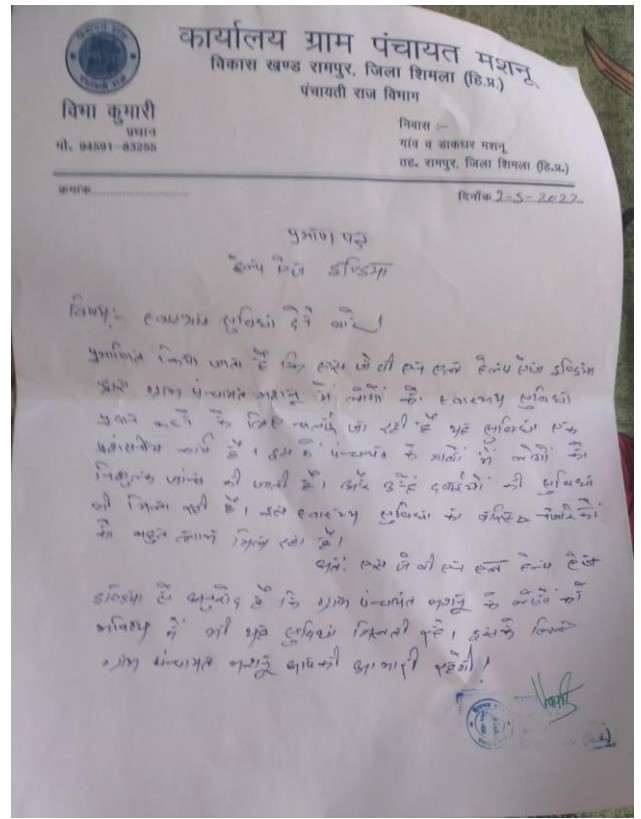 कार्यालय ग्राम पंचायत मशनू
विकास खण्ड रामपुर, जिला शिमला (हि.प्र.)
पंचायती राज विभाग
विभा कुमारी
प्रधान
मो. 94591-83255
निवास :-
गांव व डाकघर मशनू
तह. रामपुर, जिला शिमला (हि.प्र.)
क्रमांक
दिनाँक 2-5-2022
प्रमाण पत्र
हेल्प ऐज इण्डिया
विषय:- स्वास्थ्य सुविधा देने बारे।
प्रमाणित किया जाता है कि एस जे वी एन एवं हेल्प ऐज इण्डिया
द्वारा ग्राम पंचायत मशनू में लोगों को स्वास्थ्य सुविधा
प्रदान करने के लिए चलाई जा रही है यह सुविधा एक
प्रशंसनीय कार्य है। इस में पंचायत के गांवों में लोगों की
निशुल्क जांच की जाती है। और उन्हें दवाईयों की सुविधा
भी मिल रही है। इस स्वास्थ्य सुविधा का वरिष्ठ नागरिकों
को बहुत लाभ मिल रहा है।
अतः एस जे वी एन एवं हेल्प ऐज
इण्डिया से अनुरोध है कि ग्राम पंचायत मशनू के लोगों को
भविष्य में भी यह सुविधा मिलती रहे। इसके लिए
ग्राम पंचायत मशनू आपकी आभारी रहेगी।